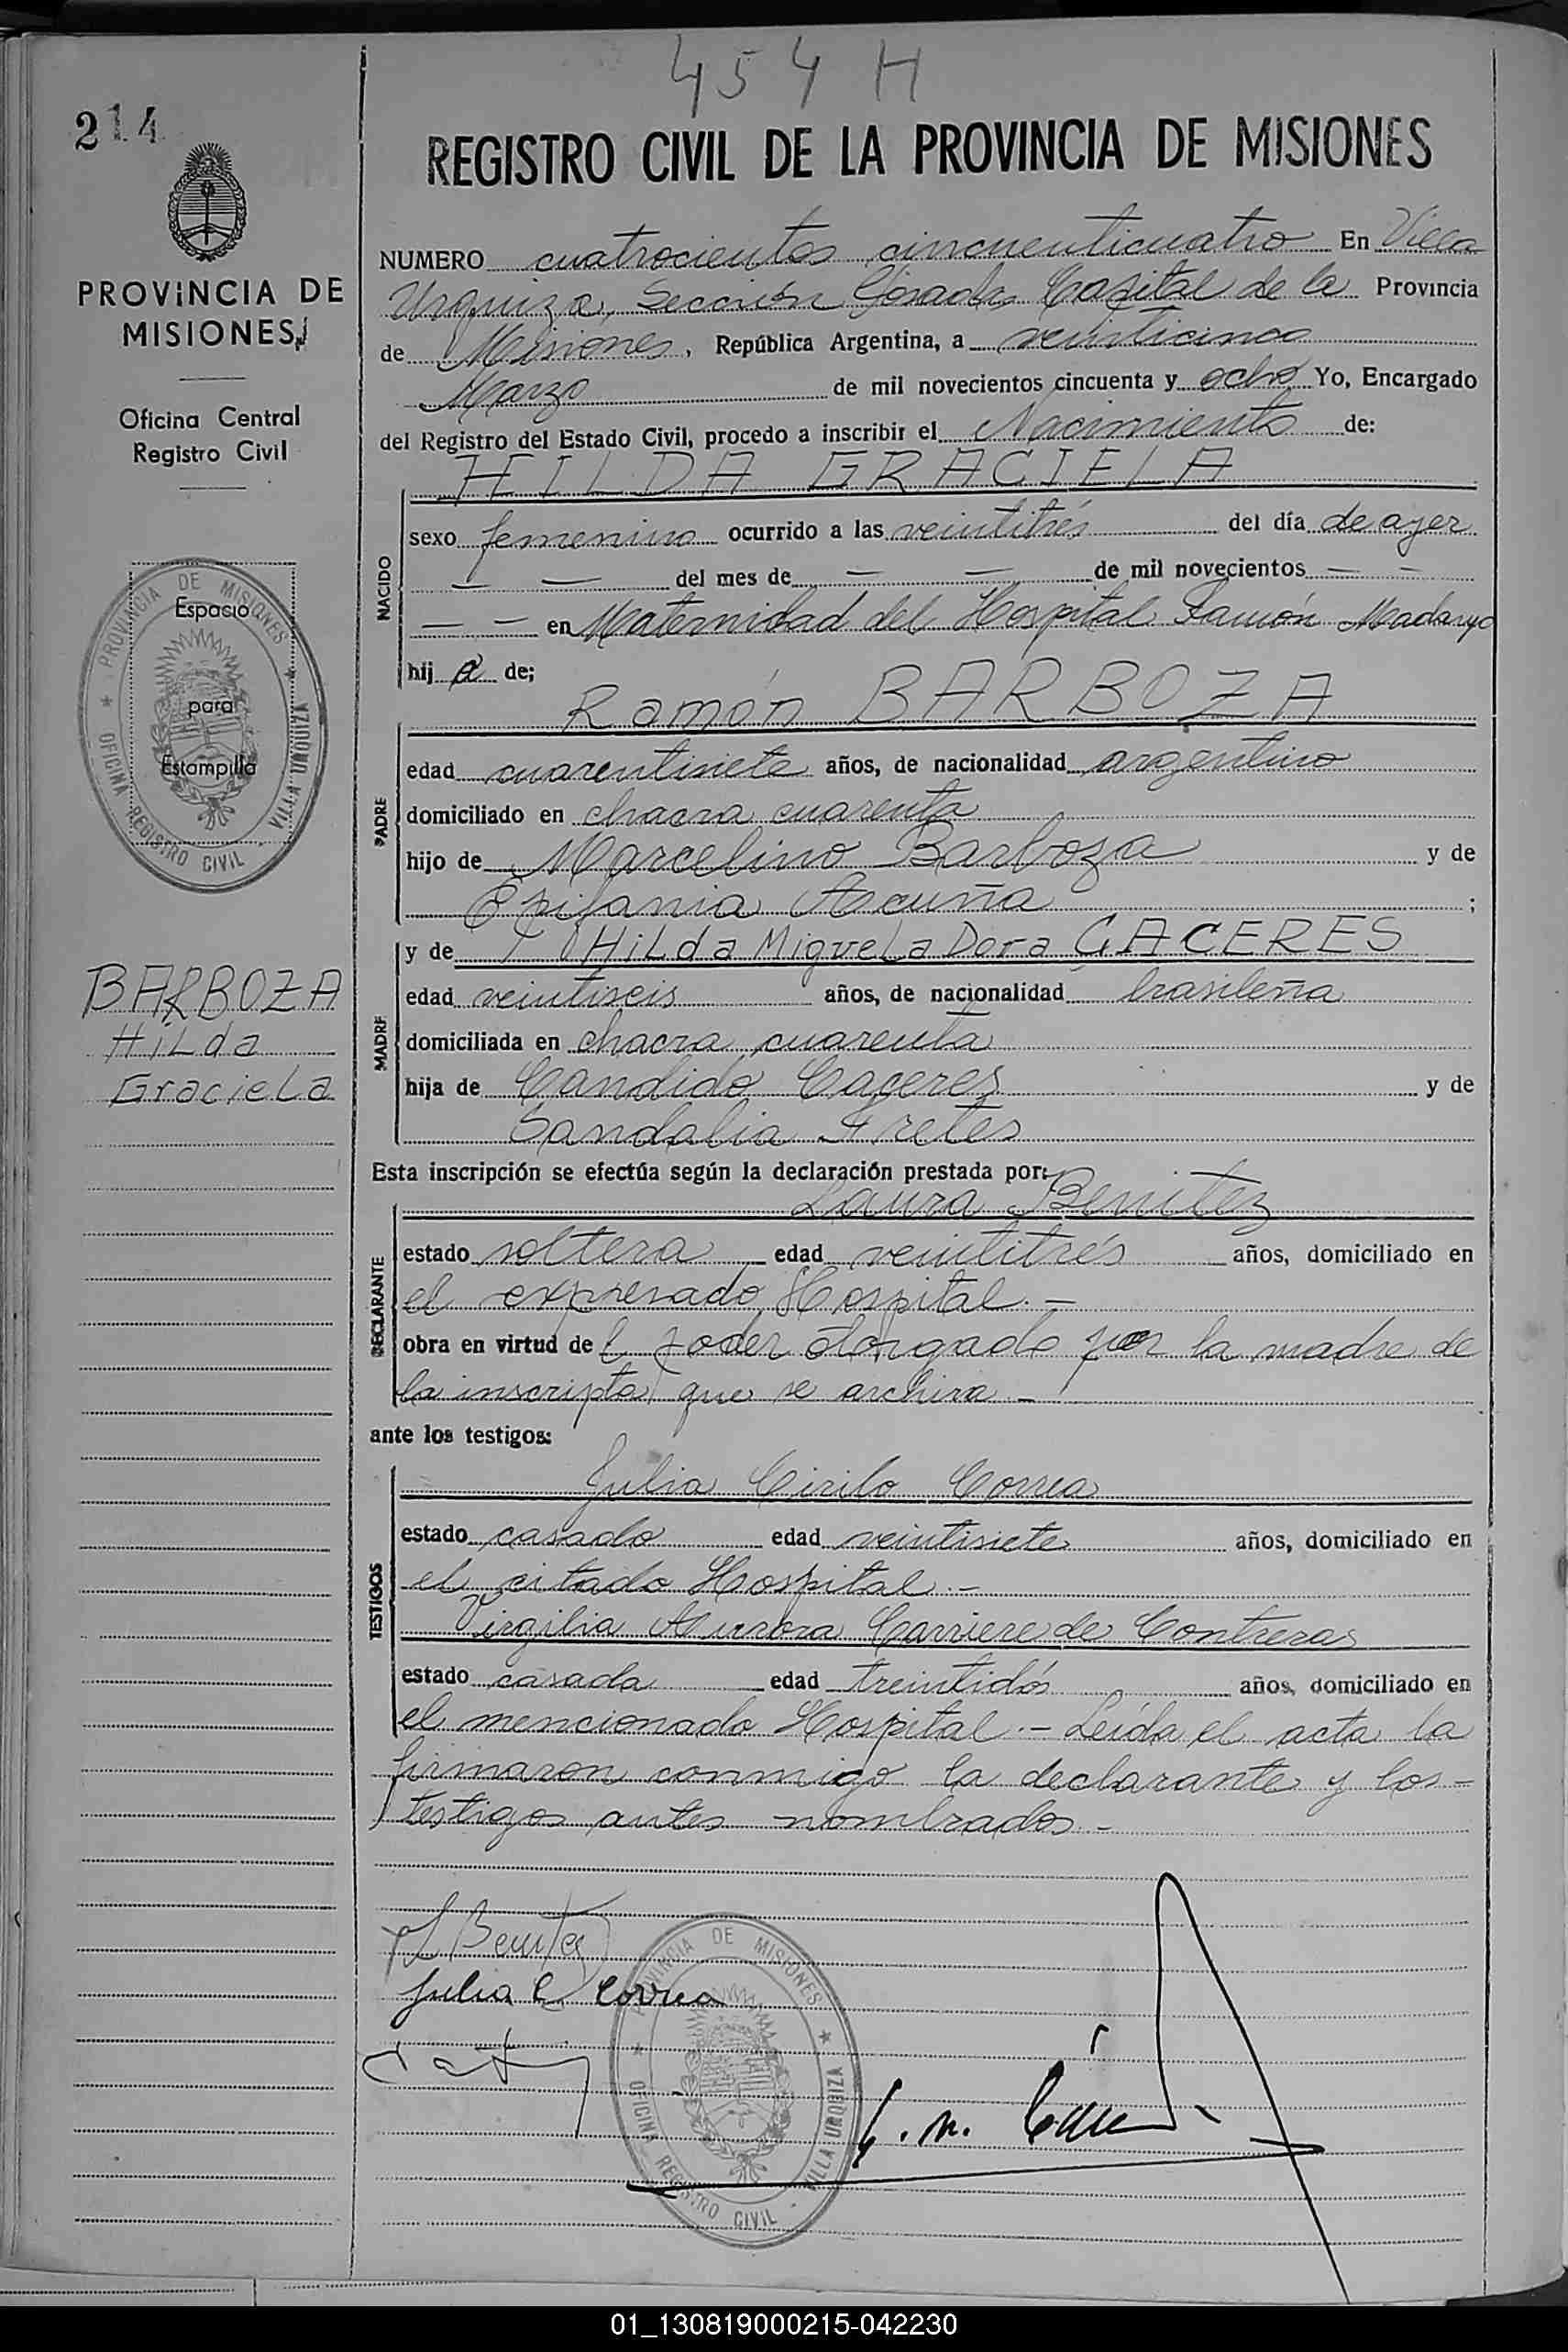 454 H
214
REGISTRO CIVIL DE LA PROVINCIA DE MISIONES
PROVINCIA DE
MISIONES
Oficina Central
Registro Civil
PROVINCIA DE MISIONES
OFICINA REGISTRO CIVIL - VILLA URQUIZA
Espacio
para
Estampilla
BARBOZA
Hilda
Graciela
NUMERO cuatrocientos cincuenticuatro En Villa
Urquiza, Sección Posadas Capital de la Provincia
de Misiones, República Argentina, a veinticinco
Marzo de mil novecientos cincuenta y ocho Yo, Encargado
del Registro del Estado Civil, procedo a inscribir el Nacimiento de:
HILDA GRACIELA
NACIDO
sexo femenino ocurrido a las veintitrés del día de ayer
— — del mes de — — de mil novecientos — —
— — en Maternidad del Hospital Ramón Madariaga
hij a de;
Ramón BARBOZA
PADRE
edad cuarentisiete años, de nacionalidad argentino
domiciliado en chacra cuarenta
hijo de Marcelino Barboza y de
Epifania Acuña ;
MADRE
y de Hilda Miguela Dora CACERES
edad veintiseis años, de nacionalidad brasileña
domiciliada en chacra cuarenta
hija de Candido Caceres y de
Sandalia Fretes
Esta inscripción se efectúa según la declaración prestada por:
Laura Benitez
DECLARANTE
estado soltera edad veintitrés años, domiciliado en
el expresado Hospital.—
obra en virtud de l poder otorgado por la madre de
la inscripta que se archiva.—
ante los testigos:
Julia Cirilo Correa
TESTIGOS
estado casado edad veintisiete años, domiciliado en
el citado Hospital.—
Virgilia Aurora Carriere de Contreras
estado casada edad treintidós años, domiciliado en
el mencionado Hospital.— Leída el acta la
firmaron conmigo la declarante y los—
testigos antes nombrados.—
L Benitez
Julia C Correa
PROVINCIA DE MISIONES
OFICINA REGISTRO CIVIL - VILLA URQUIZA
01_130819000215-042230